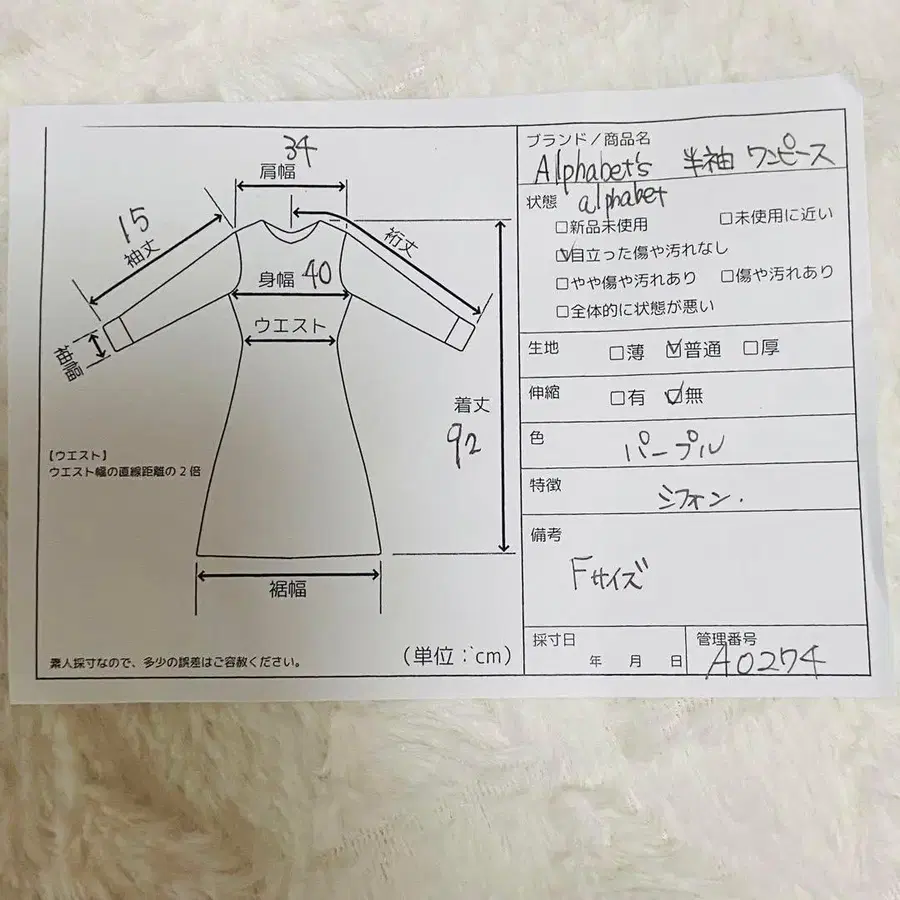 34
肩幅
15
袖丈
裄丈
身幅 40
ウエスト
袖幅
着丈
92
【ウエスト】
ウエスト幅の直線距離の2倍
裾幅
素人採寸なので、多少の誤差はご容赦ください。
(単位:cm)
ブランド/商品名
Alphabet's 半袖 ワンピース
alphabet
状態
□新品未使用 □未使用に近い
☑目立った傷や汚れなし
□やや傷や汚れあり □傷や汚れあり
□全体的に状態が悪い
生地 □薄 ☑普通 □厚
伸縮 □有 ☑無
色
パープル
特徴
シフォン.
備考
Fサイズ
採寸日
年 月 日
管理番号
A0274